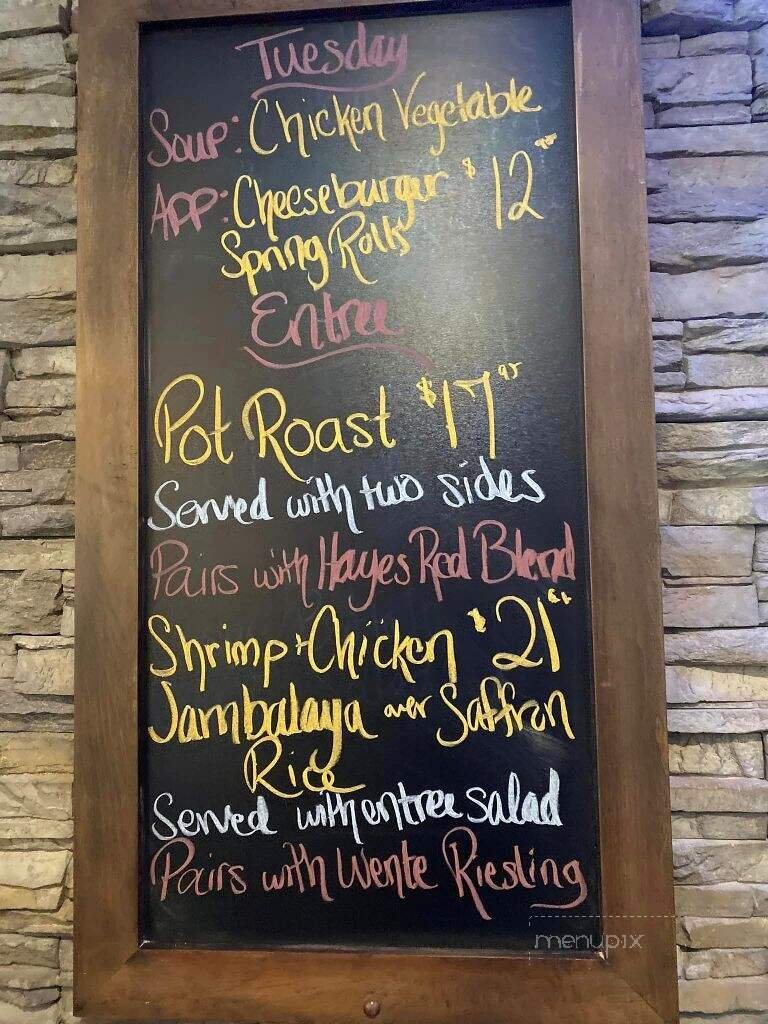 Tuesday
Soup: Chicken Vegetable
App: Cheeseburger $12 95
Spring Rolls
Entree
Pot Roast $17 95
Served with two sides
Pairs with Hayes Red Blend
Shrimp + Chicken $21 95
Jambalaya over Saffron
Rice
Served with entree salad
Pairs with Wente Riesling
menupix